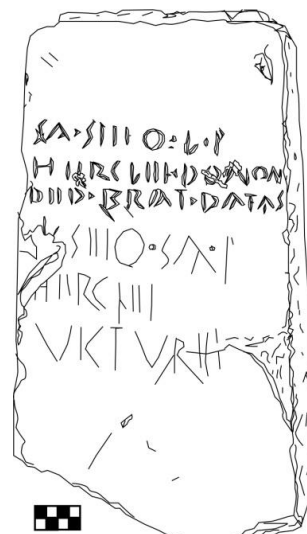 SA·SIIIO·L·F
HIIRCLIII·DONOM
DIID·BRAT·DATAS
SIIIO·SA·F
HIIRCLIII
VICTVRIII